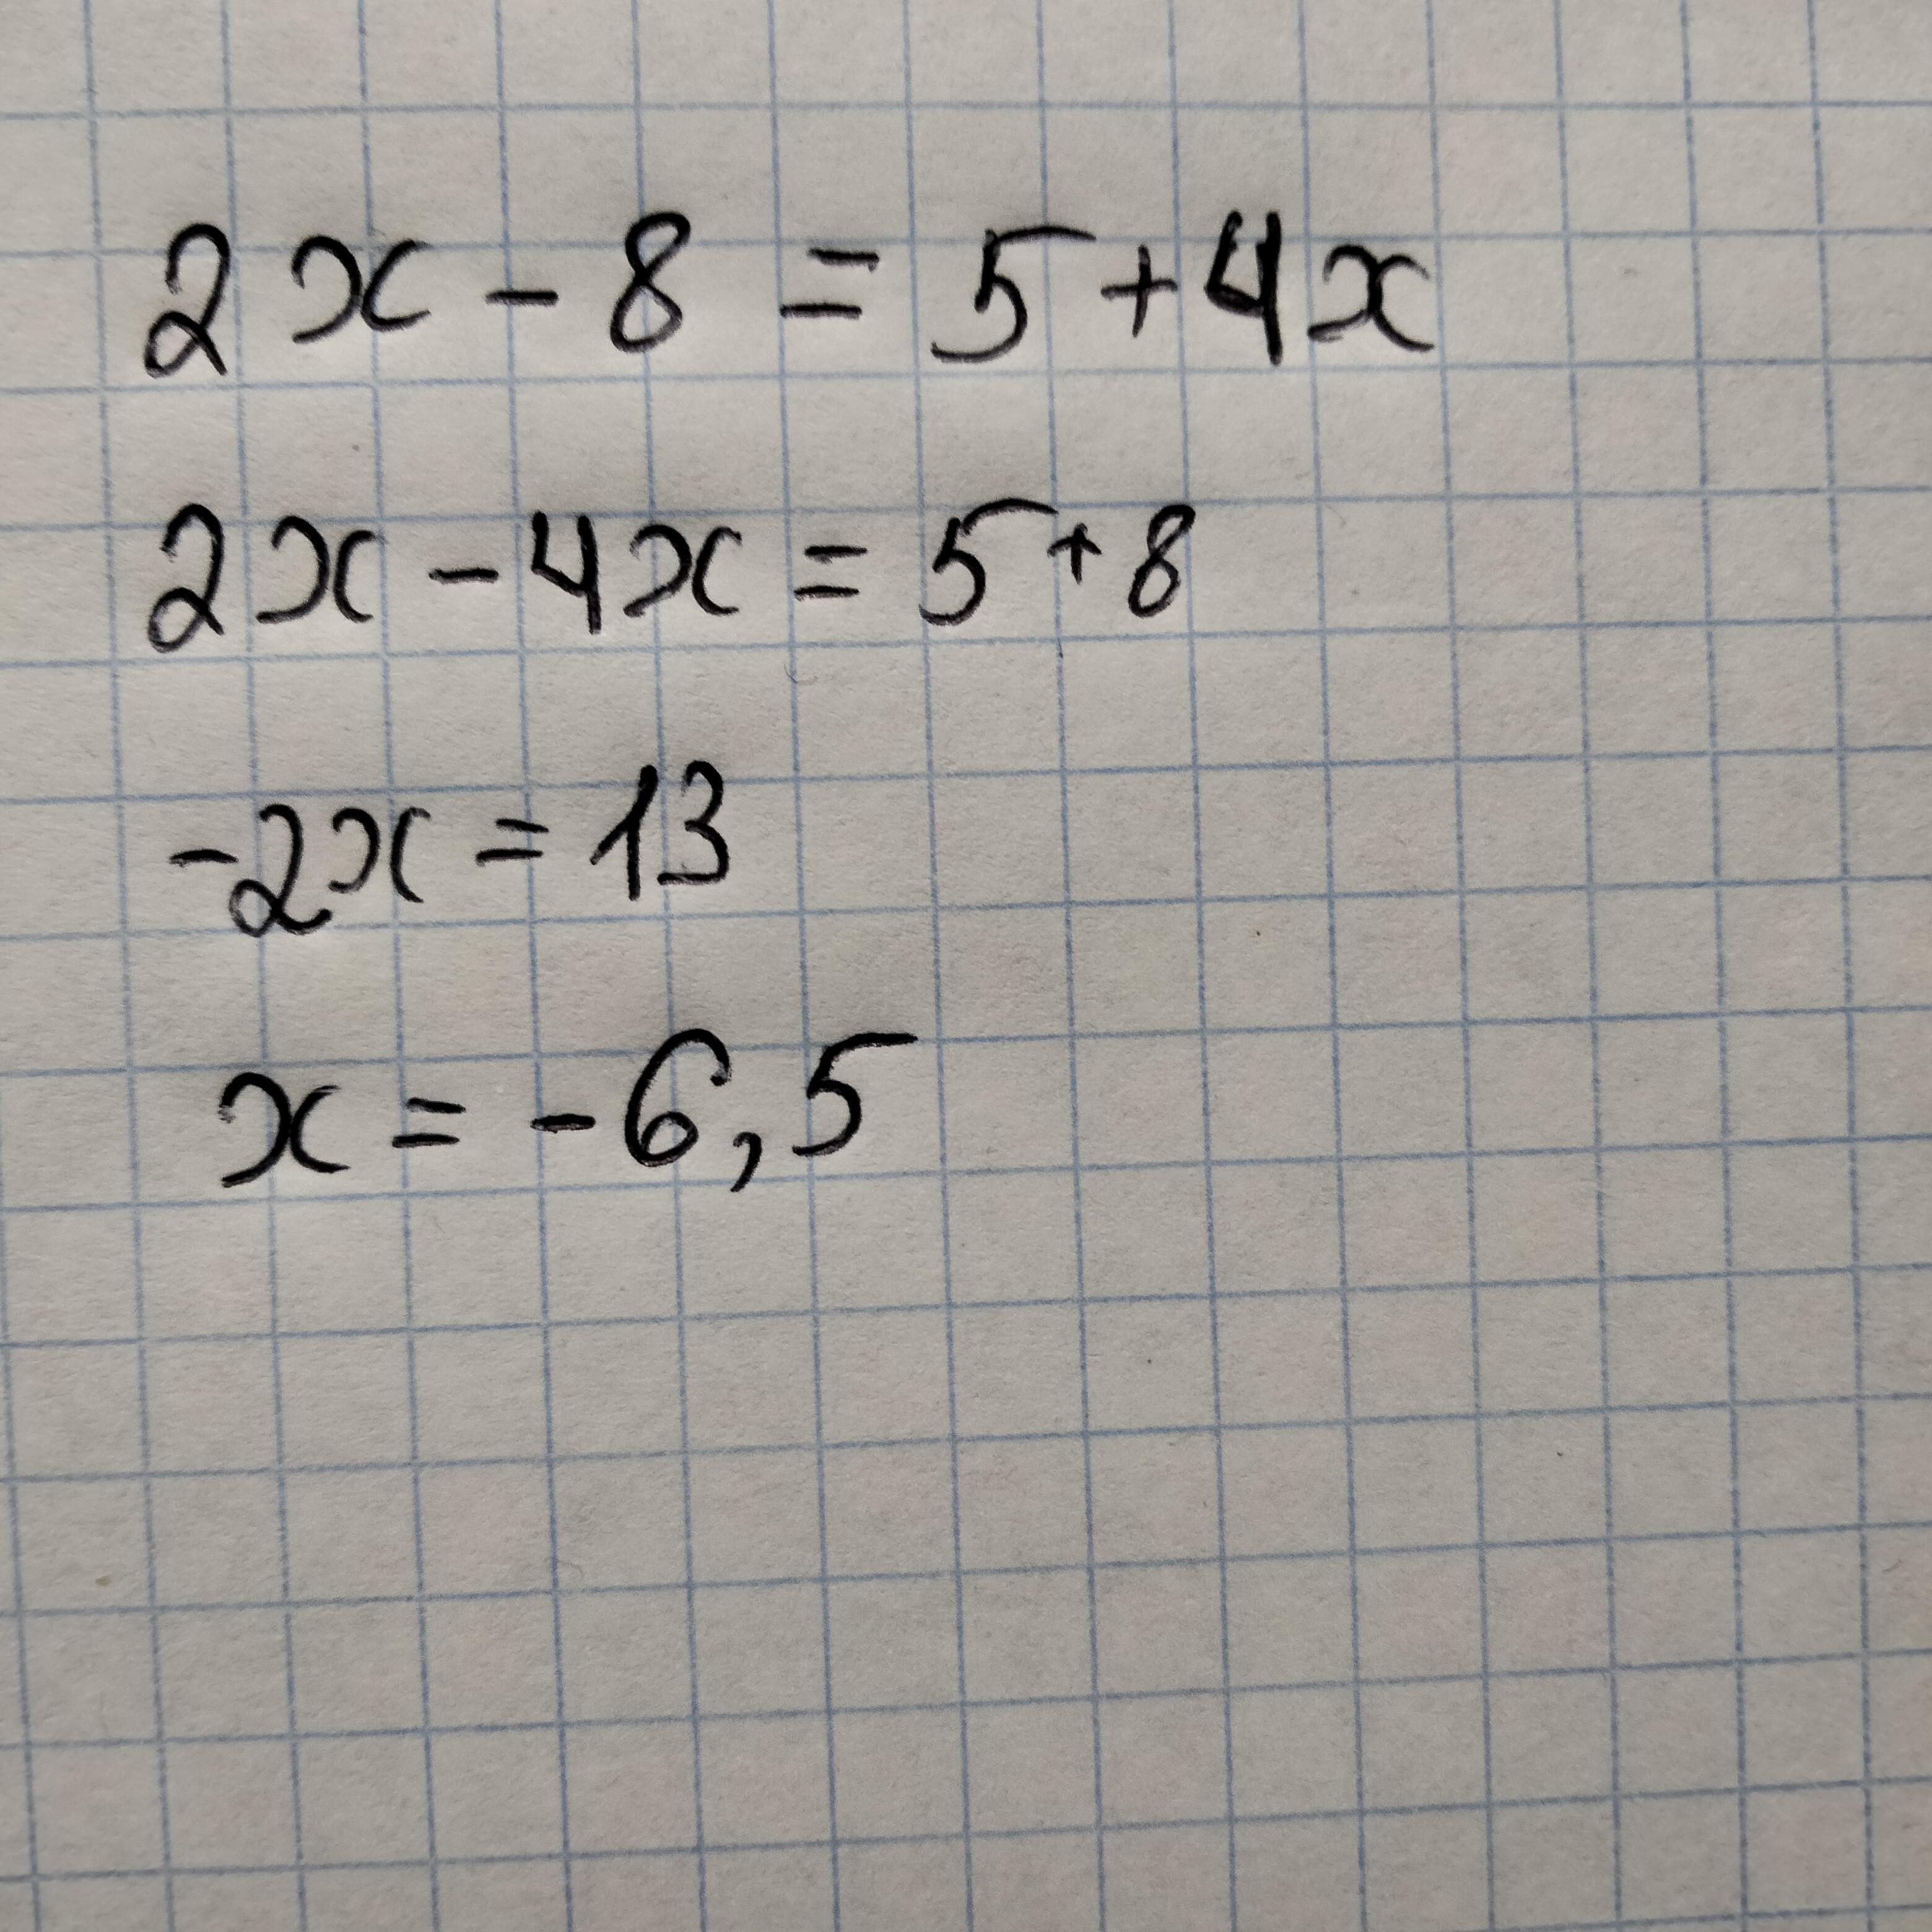 2x - 8 = 5 + 4x
2x - 4x = 5 + 8
-2x = 13
x = -6,5